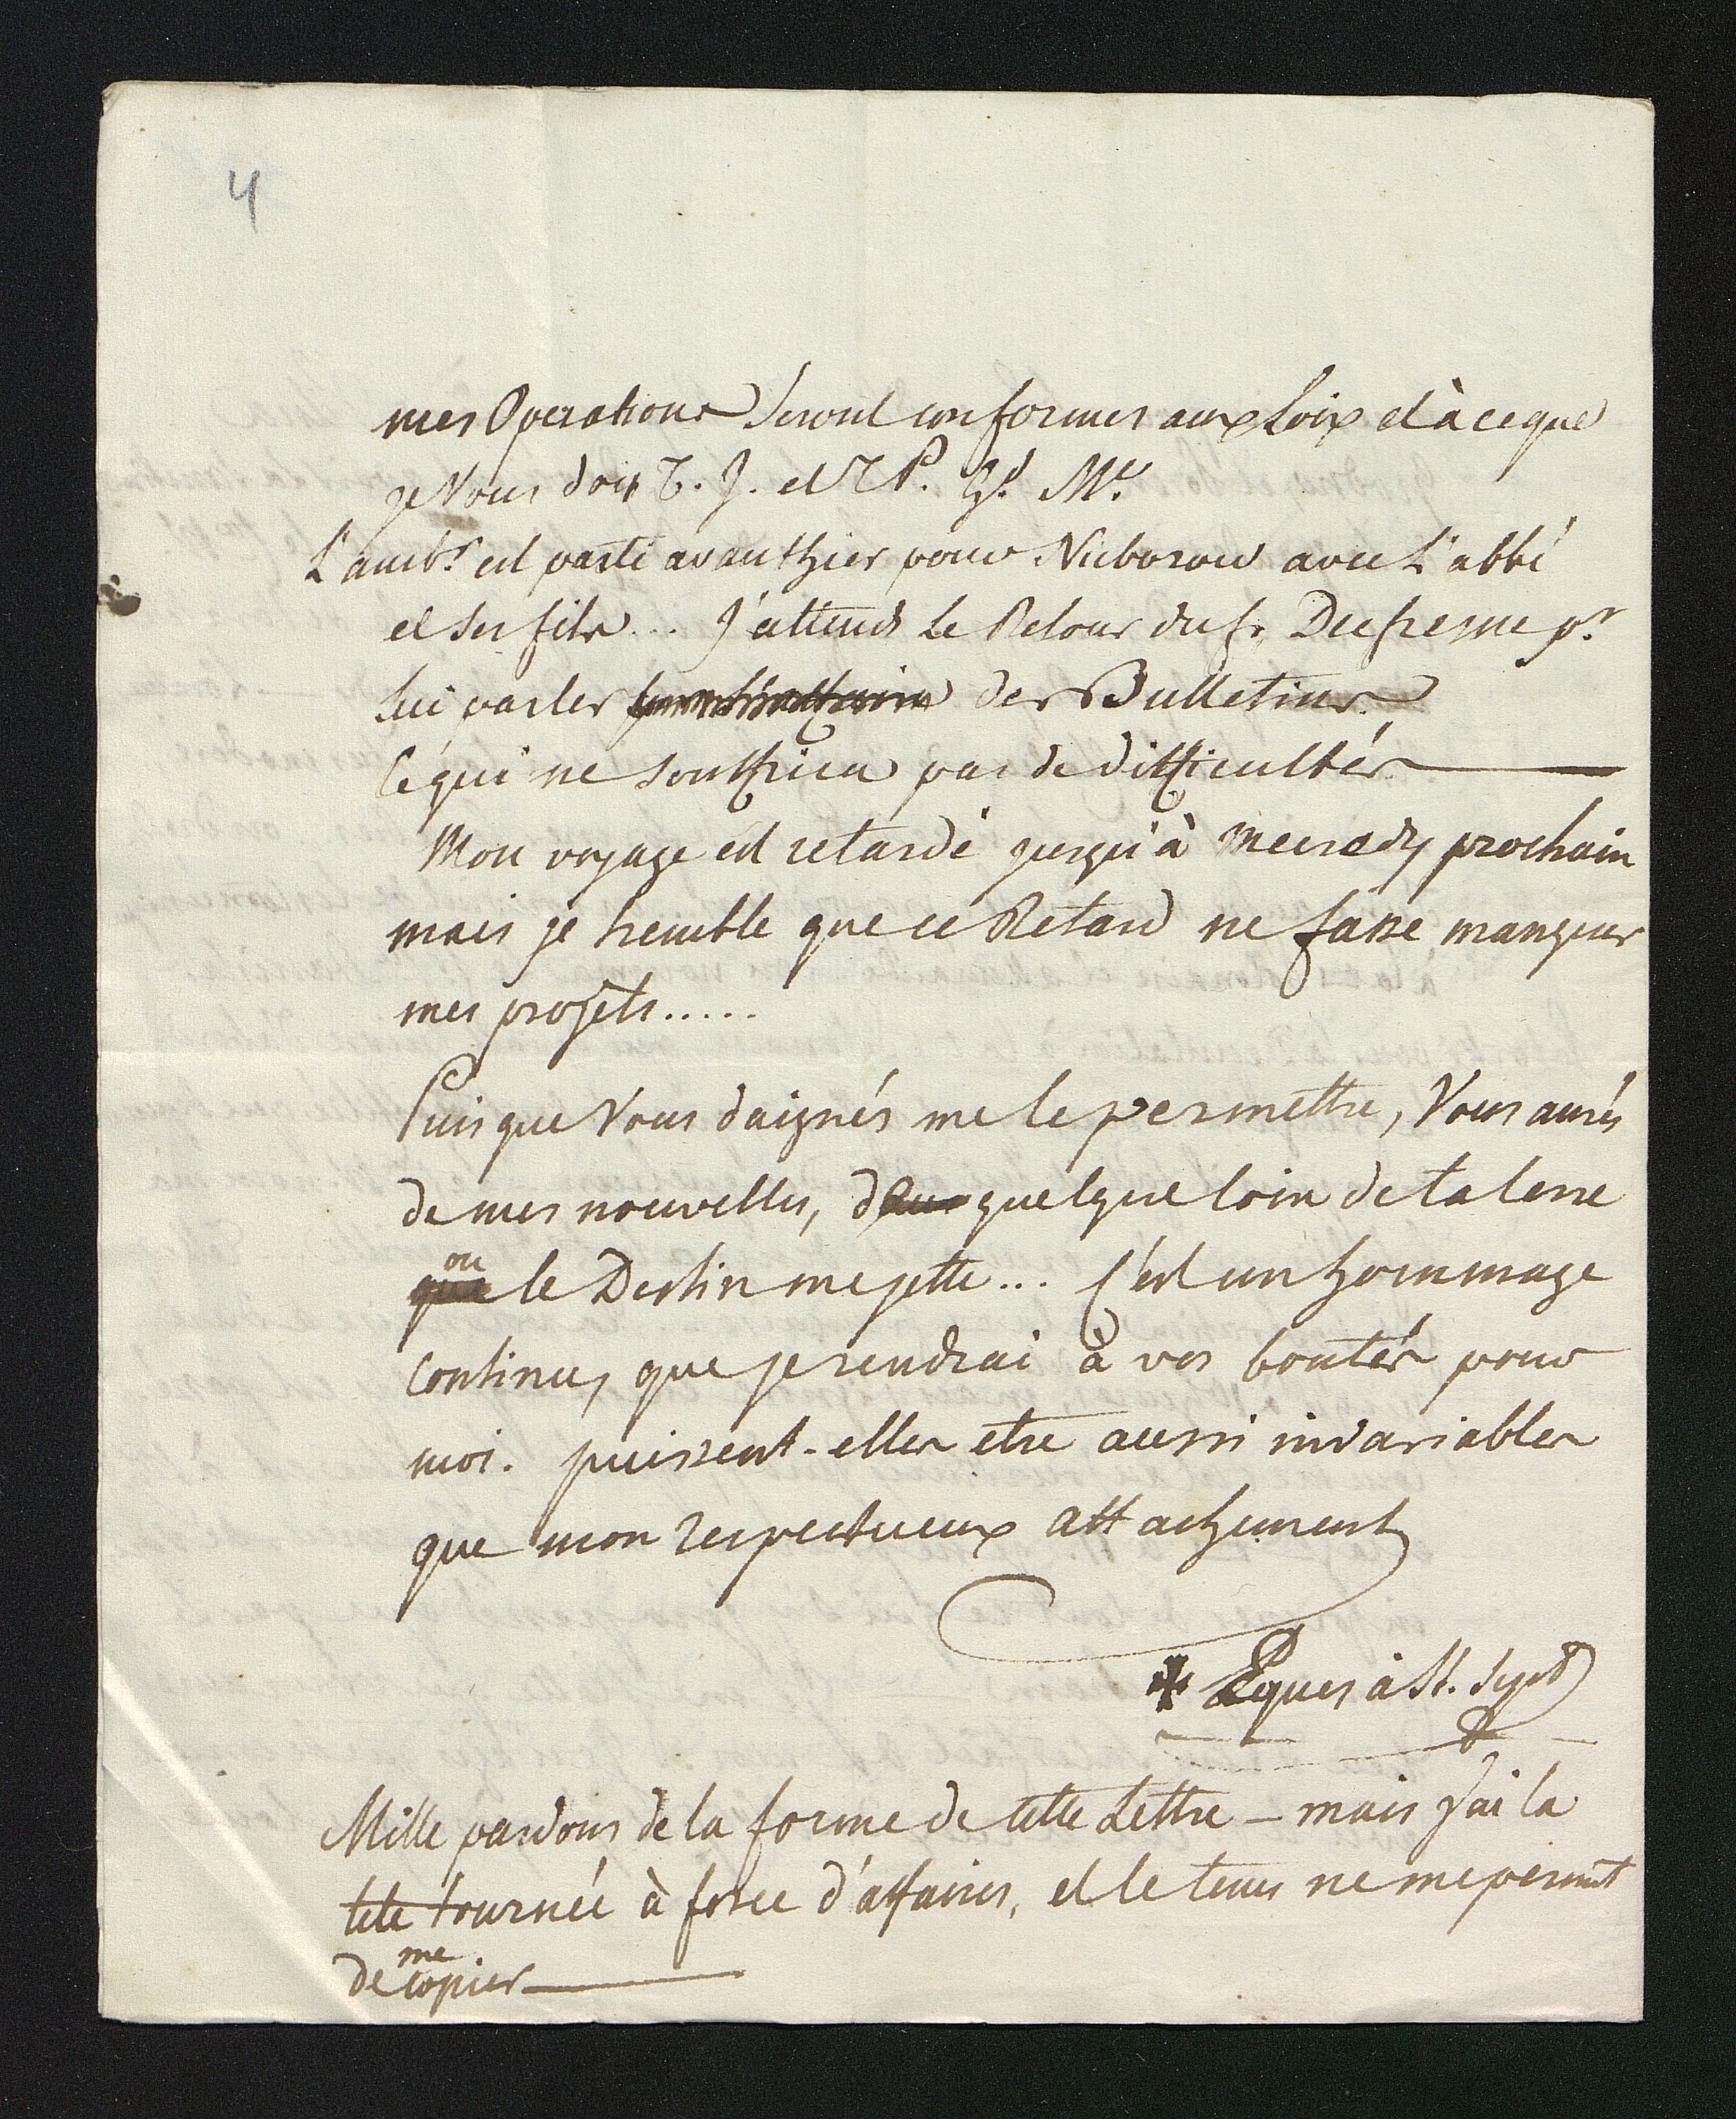 4
mes Operations Seront conformes aux Loix et à ce que
je Vous dois T. J. et T P. G.d M.e
L'amb.r est parti avanthier pour Nieborow avec L'abbé
et ses fils... J'attends Le Retour du fr. Dufresne p.r
Lui parler des Bulletins.
Ce qui ne souffrira pas de difficultés
Mon voyage est retardé jusqu'à Mercredy prochain
mais je tremble que ce Retard ne fasse manquer
mes projets.....
Puisque Vous daignés me le permettre, Vous aurés
de mes nouvelles, dans quelque loin de la terre
ou
que le Destin me jette... C'est un hommage
Continu, que je rendrai à vos bontés pour
moi. puissent-elles etre aussi invariables
que mon respectueux attachement
Eques à St.
Mille pardons de la forme de cette Lettre - mais j'ai la
tete tournée à force d'affaires, et le tems ne me permet
me
de copier